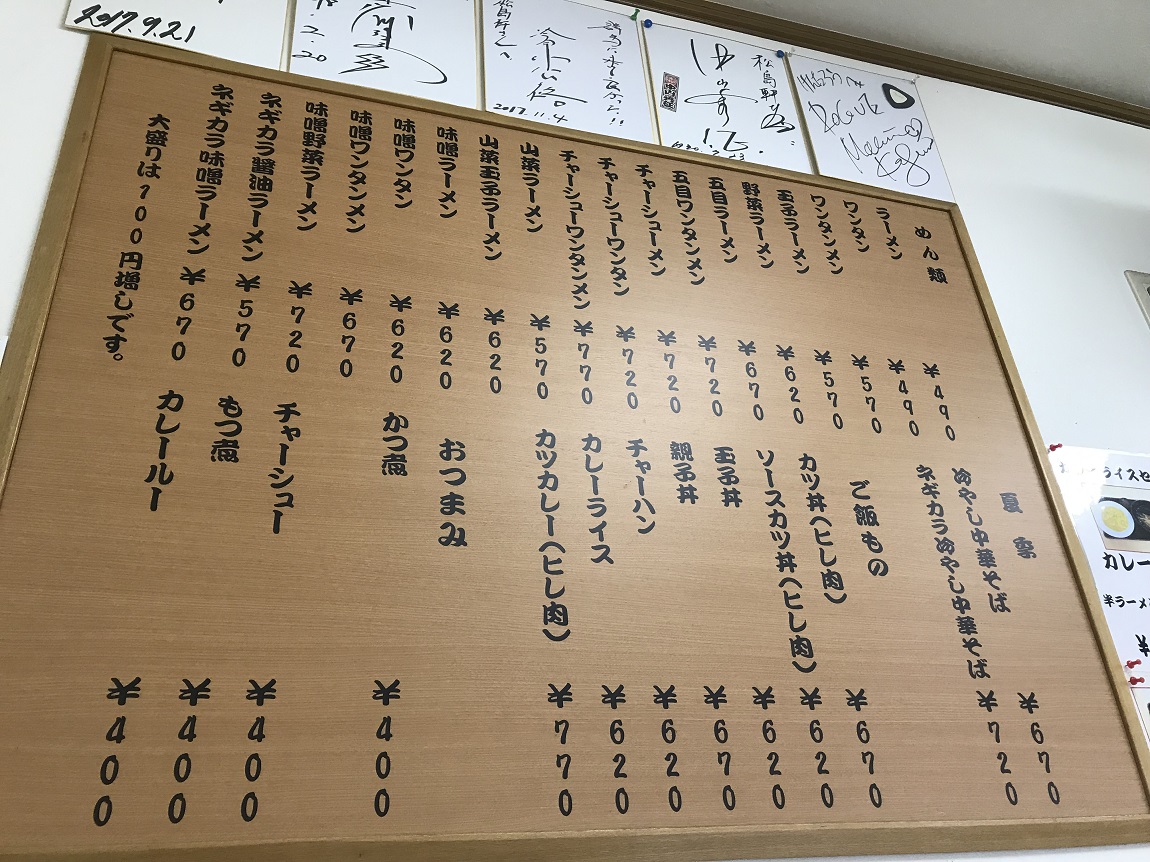 2017.9.21
2.20
2017.11.4
松島軒さん
めん類
ラーメン ¥490
ワンタン ¥490
ワンタンメン ¥570
玉子ラーメン ¥570
野菜ラーメン ¥620
五目ラーメン ¥670
五目ワンタンメン ¥720
チャーシューメン ¥720
チャーシューワンタン ¥720
チャーシューワンタンメン ¥770
山菜ラーメン ¥570
山菜玉子ラーメン ¥620
味噌ラーメン ¥620
味噌ワンタン ¥620
味噌ワンタンメン ¥670
味噌野菜ラーメン ¥720
ネギカラ醤油ラーメン ¥570
ネギカラ味噌ラーメン ¥670
大盛りは100円増しです。
夏季
冷やし中華そば ¥670
ネギカラ冷やし中華そば ¥720
ご飯もの
カツ丼(ヒレ肉) ¥670
ソースカツ丼(ヒレ肉) ¥620
玉子丼 ¥620
親子丼 ¥670
チャーハン ¥620
カレーライス ¥620
カツカレー(ヒレ肉) ¥770
おつまみ
かつ煮 ¥400
チャーシュー ¥400
もつ煮 ¥400
カレールー ¥400
ライスセ
カレー
半ラーメ
¥